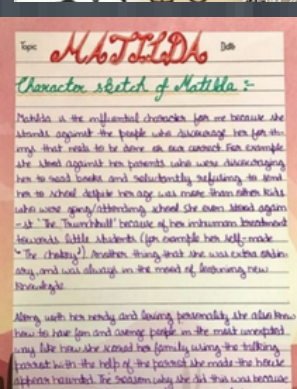 Topic MATILDA Date
Character sketch of Matilda :-
Matilda is the influential character for me because she
stands against the people who discourage her for thi-
ngs that needs to be done or are correct. For example
she stood against her parents who were discouraging
her to read books and reluctantly refusing to send
her to school despite her age was more than other kids
who were going/attending school. She even stood again
-st "The Trunchbull" because of her inhuman treatment
towards little students (for example her self-made
"The chokey") Another thing that she was extra ordin-
ary, and was always in the mood of learning new
knowledge
Along with her nerdy and loving personality she also knew
how to have fun and avenge people in the most unexpected
way like how she scared her family using the talking
parrot with the help of the parrot she made the house
appear haunted. The reason why she did this was because